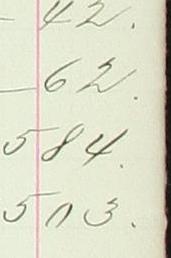 42.
62.
584.
503.